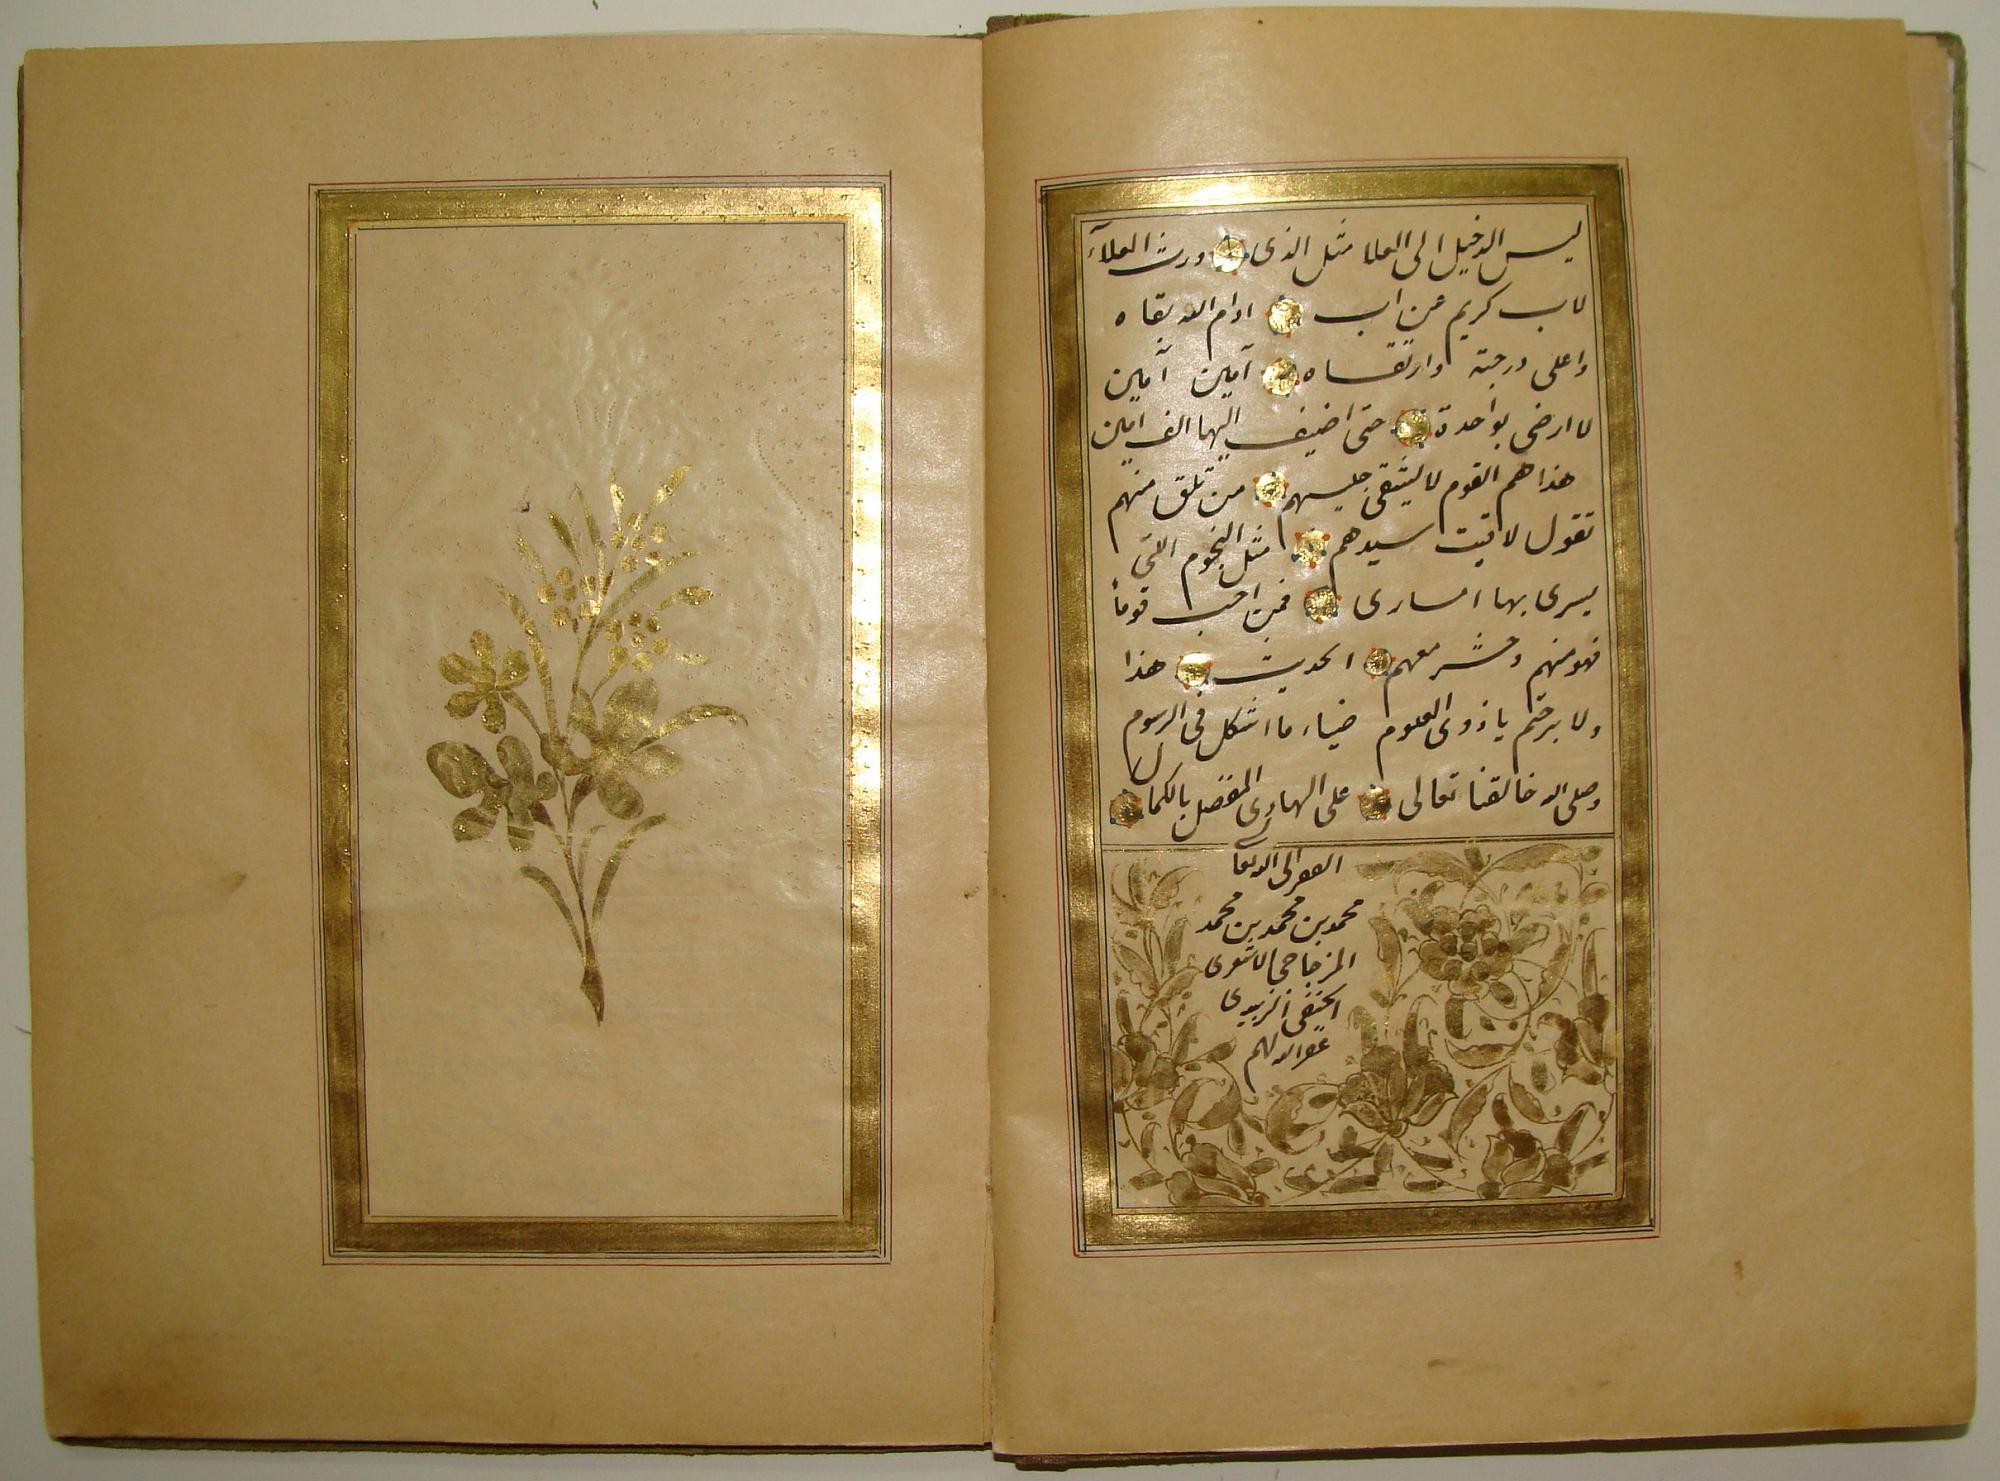 ليس الدخيل الى العلا مثل الذى ورث العلآء
لاب كريم عن اب ادام الله بقاه
واعلى درجته وارتقاه آمين آمين
لا ارضى بواحدة حتى اضيف اليها الف امين
هذا هم القوم لا يشقى جليسهم من تلق منهم
تقول لاقيت سيدهم مثل النجوم التى
يسرى بها السارى فمن احب قوماً
فهو منهم وحشر معهم الحديث هذا
ولا برحتم ياذوى العلوم ضياء ما اشكل فى الرسوم
وصلى الله خالقنا تعالى على الهادى المفضل بالكمال
الفقير الى الله تعا
محمد بن محمد بن محمد
المزجاجى الاشعرى
الحنفى الزبيدى
غفر الله لهم